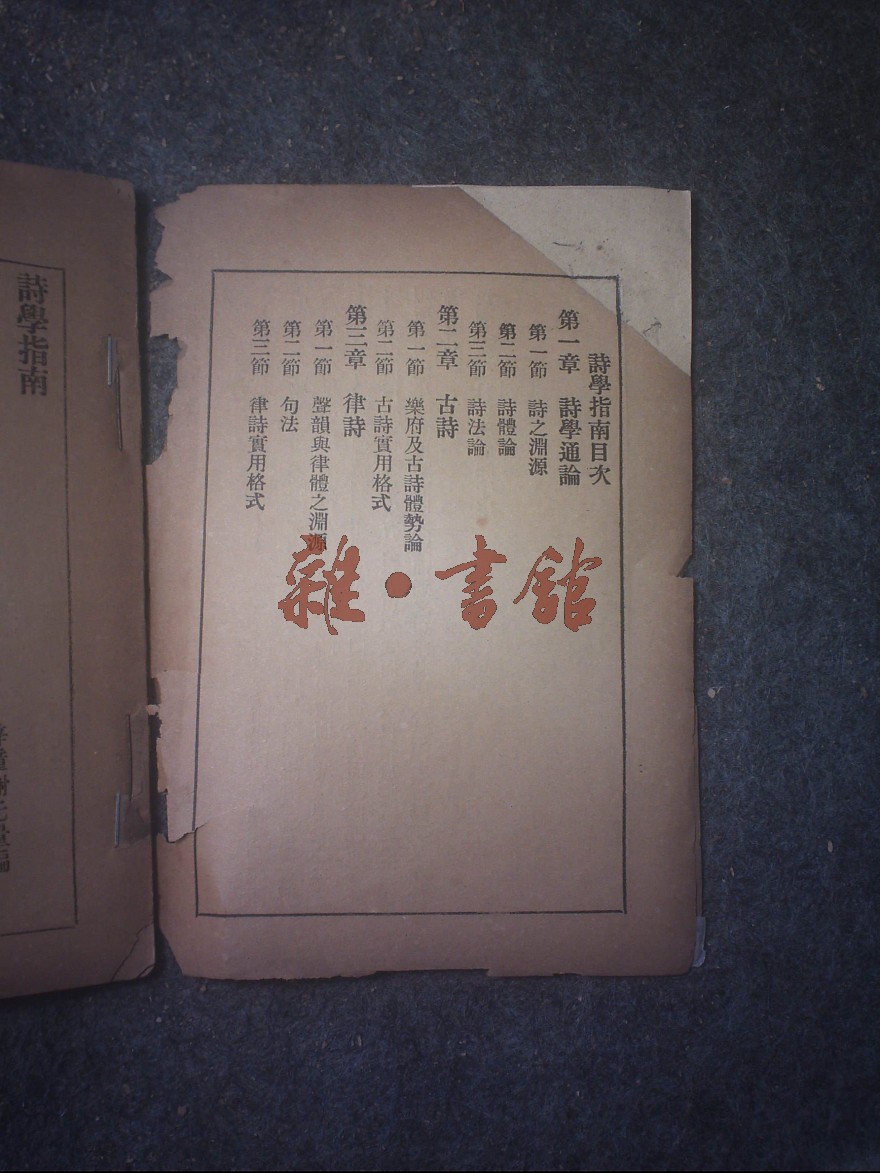 詩學指南目次
第一章　詩學通論
第一節　詩之淵源
第二節　詩體論
第三節　詩法論
第二章　古詩
第一節　樂府及古詩體勢論
第二節　古詩實用格式
第三章　律詩
第一節　聲韻與律體之淵源
第二節　句法
第三節　律詩實用格式
雜·書館
詩學指南
謝无量編